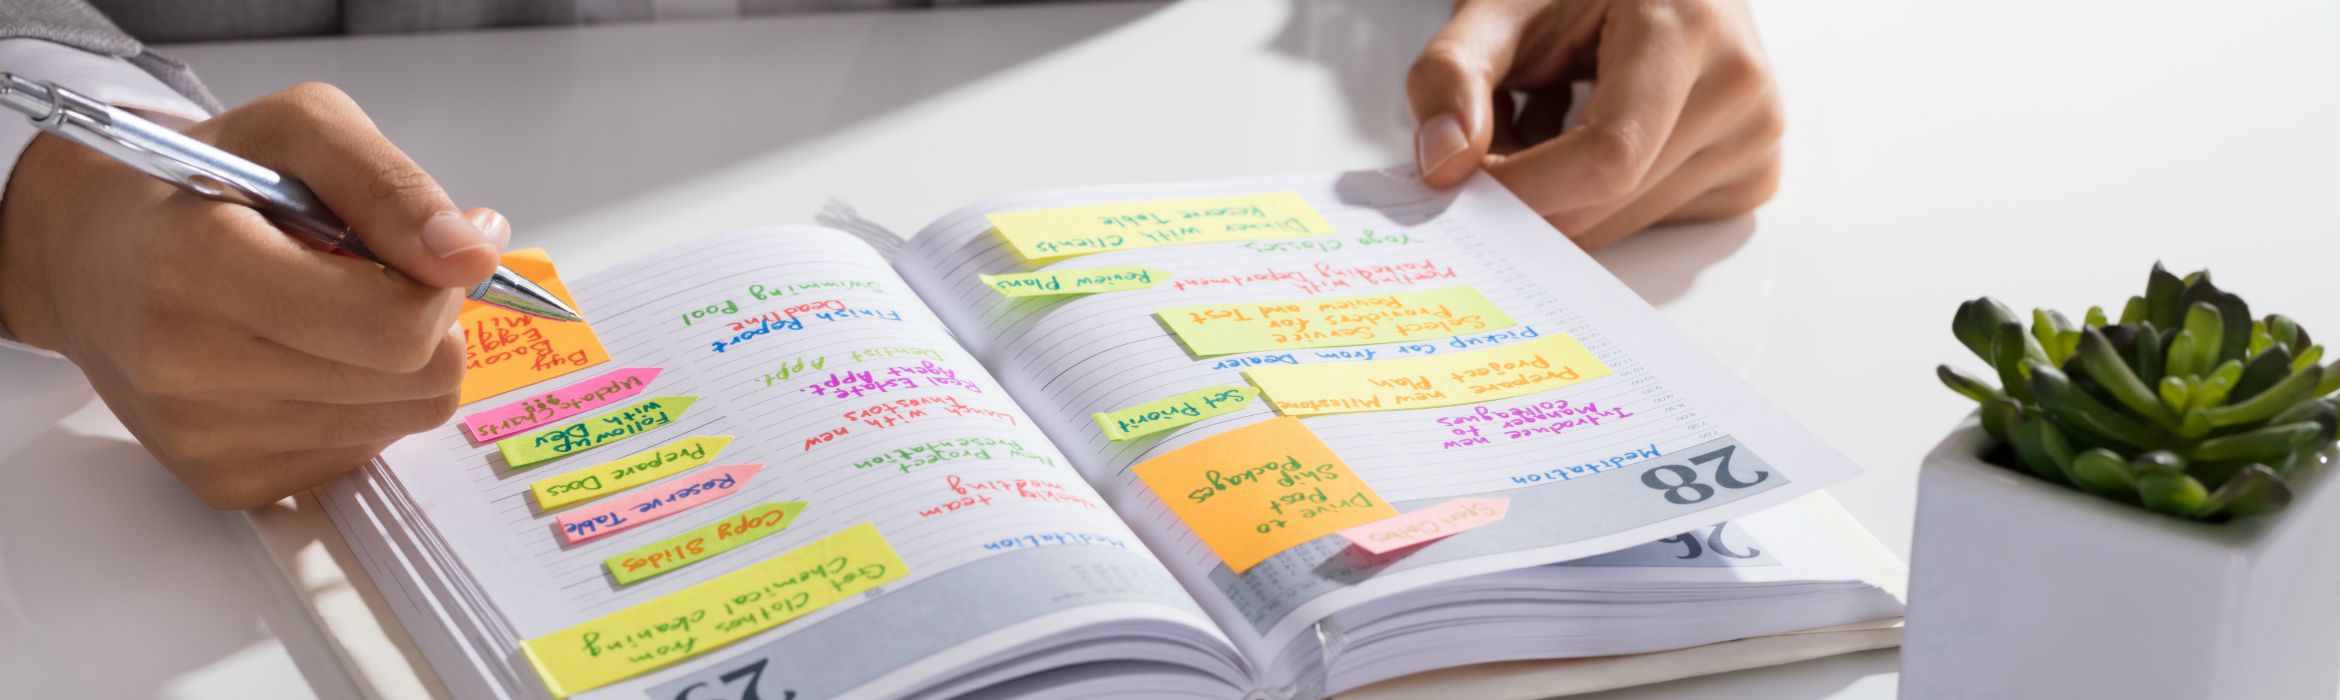 28
Meditation
Introduce new
Manager to
colleagues
Prepare new Milestone
Project Plan
Pickup Car from Dealer
Select Service
Providers for
Review and Test
Meeting with
Marketing Department
Yoga Classes
Dinner with Clients
Reserve Table
Sport Clothes
Drive to
Post
Ship
Packages
Set Priorit
Review Plans
Meditation
Weekly team
meeting
New Project
Presentation
Lunch with new
Investors
Real Estate
Agent Appt.
Dentist Appt.
Finish Report
Deadline
Swimming Pool
Get Clothes from
Chemical cleaning
Copy Slides
Reserve Table
Prepare Docs
Follow up
with Dev
Update Charts
Buy
Bacon
Eggs